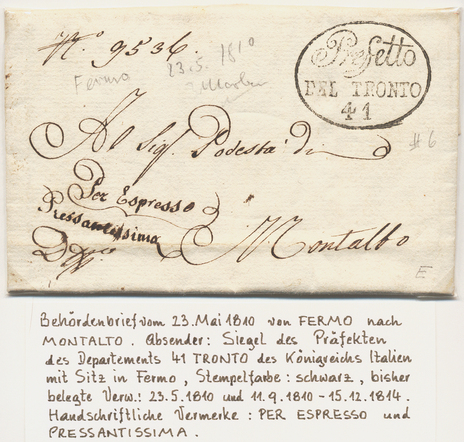 Nº 9536.
Prefetto
DEL TRONTO
41
Fermo
23.5.1810
#6
Al Sigr. Podestà di
Per Espresso
Pressantissima
Montalbo
E
Behördenbrief vom 23. Mai 1810 von FERMO nach
MONTALTO. Absender: Siegel des Präfekten
des Departements 41 TRONTO des Königreichs Italien
mit Sitz in Fermo, Stempelfarbe: schwarz, bisher
belegte Verw.: 23.5.1810 und 11.9.1810 - 15.12.1814.
Handschriftliche Vermerke: PER ESPRESSO und
PRESSANTISSIMA.